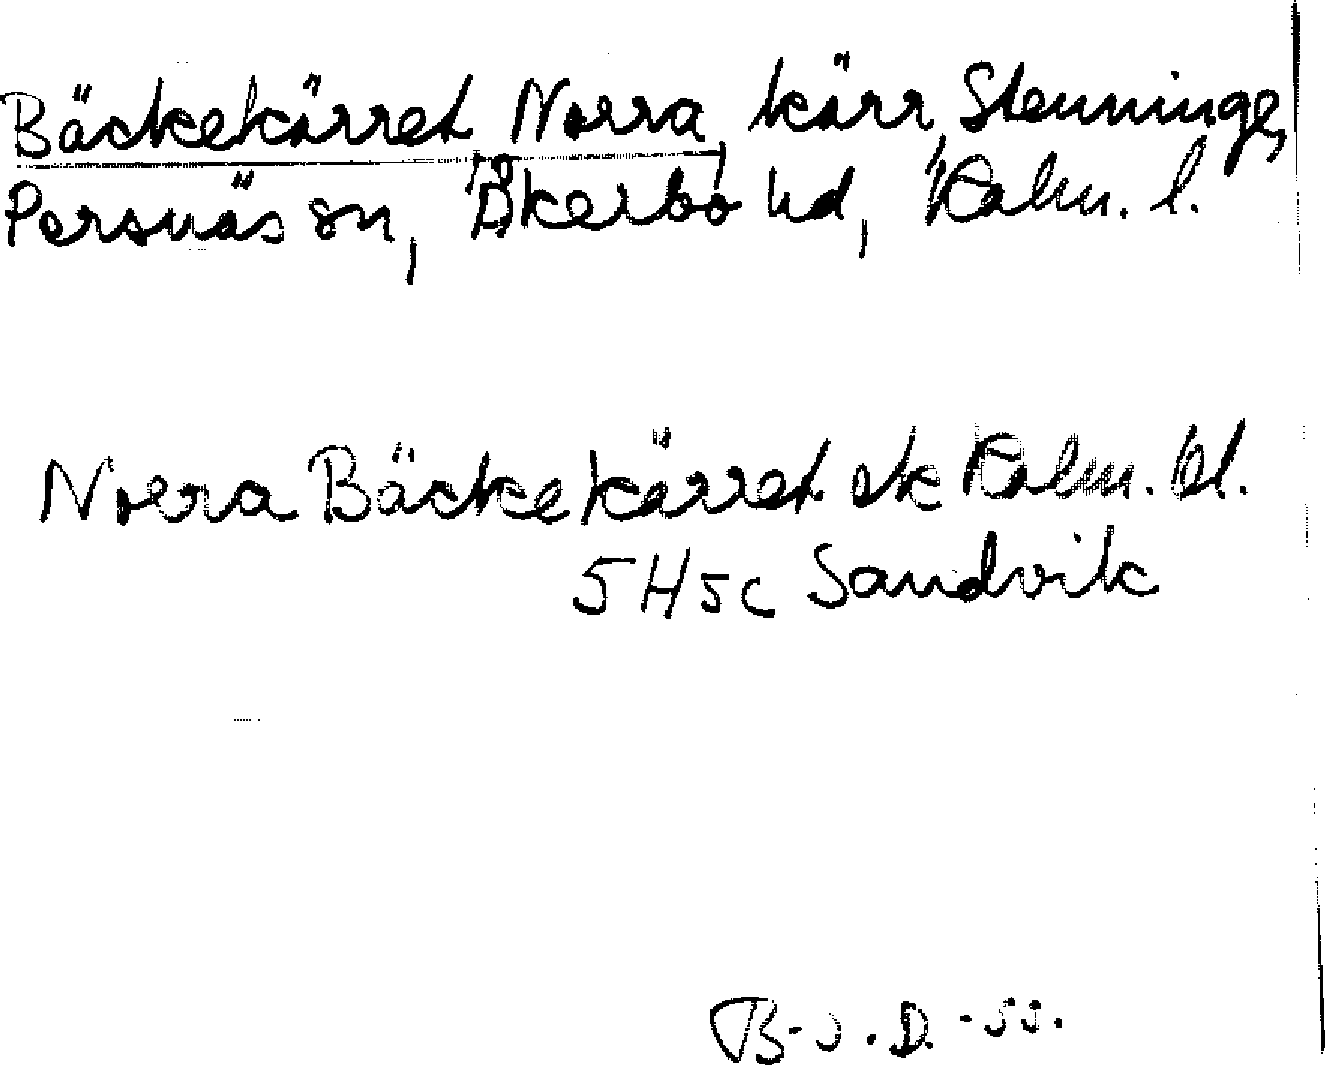 Bäckekärret, Norra, kärr, Stenninge,
Persnäs sn, Åkerbo hd, Kalm. l.
Norra Bäckekärret ek Kalm. bl.
5H5c Sandvik
B-J.D.-55.